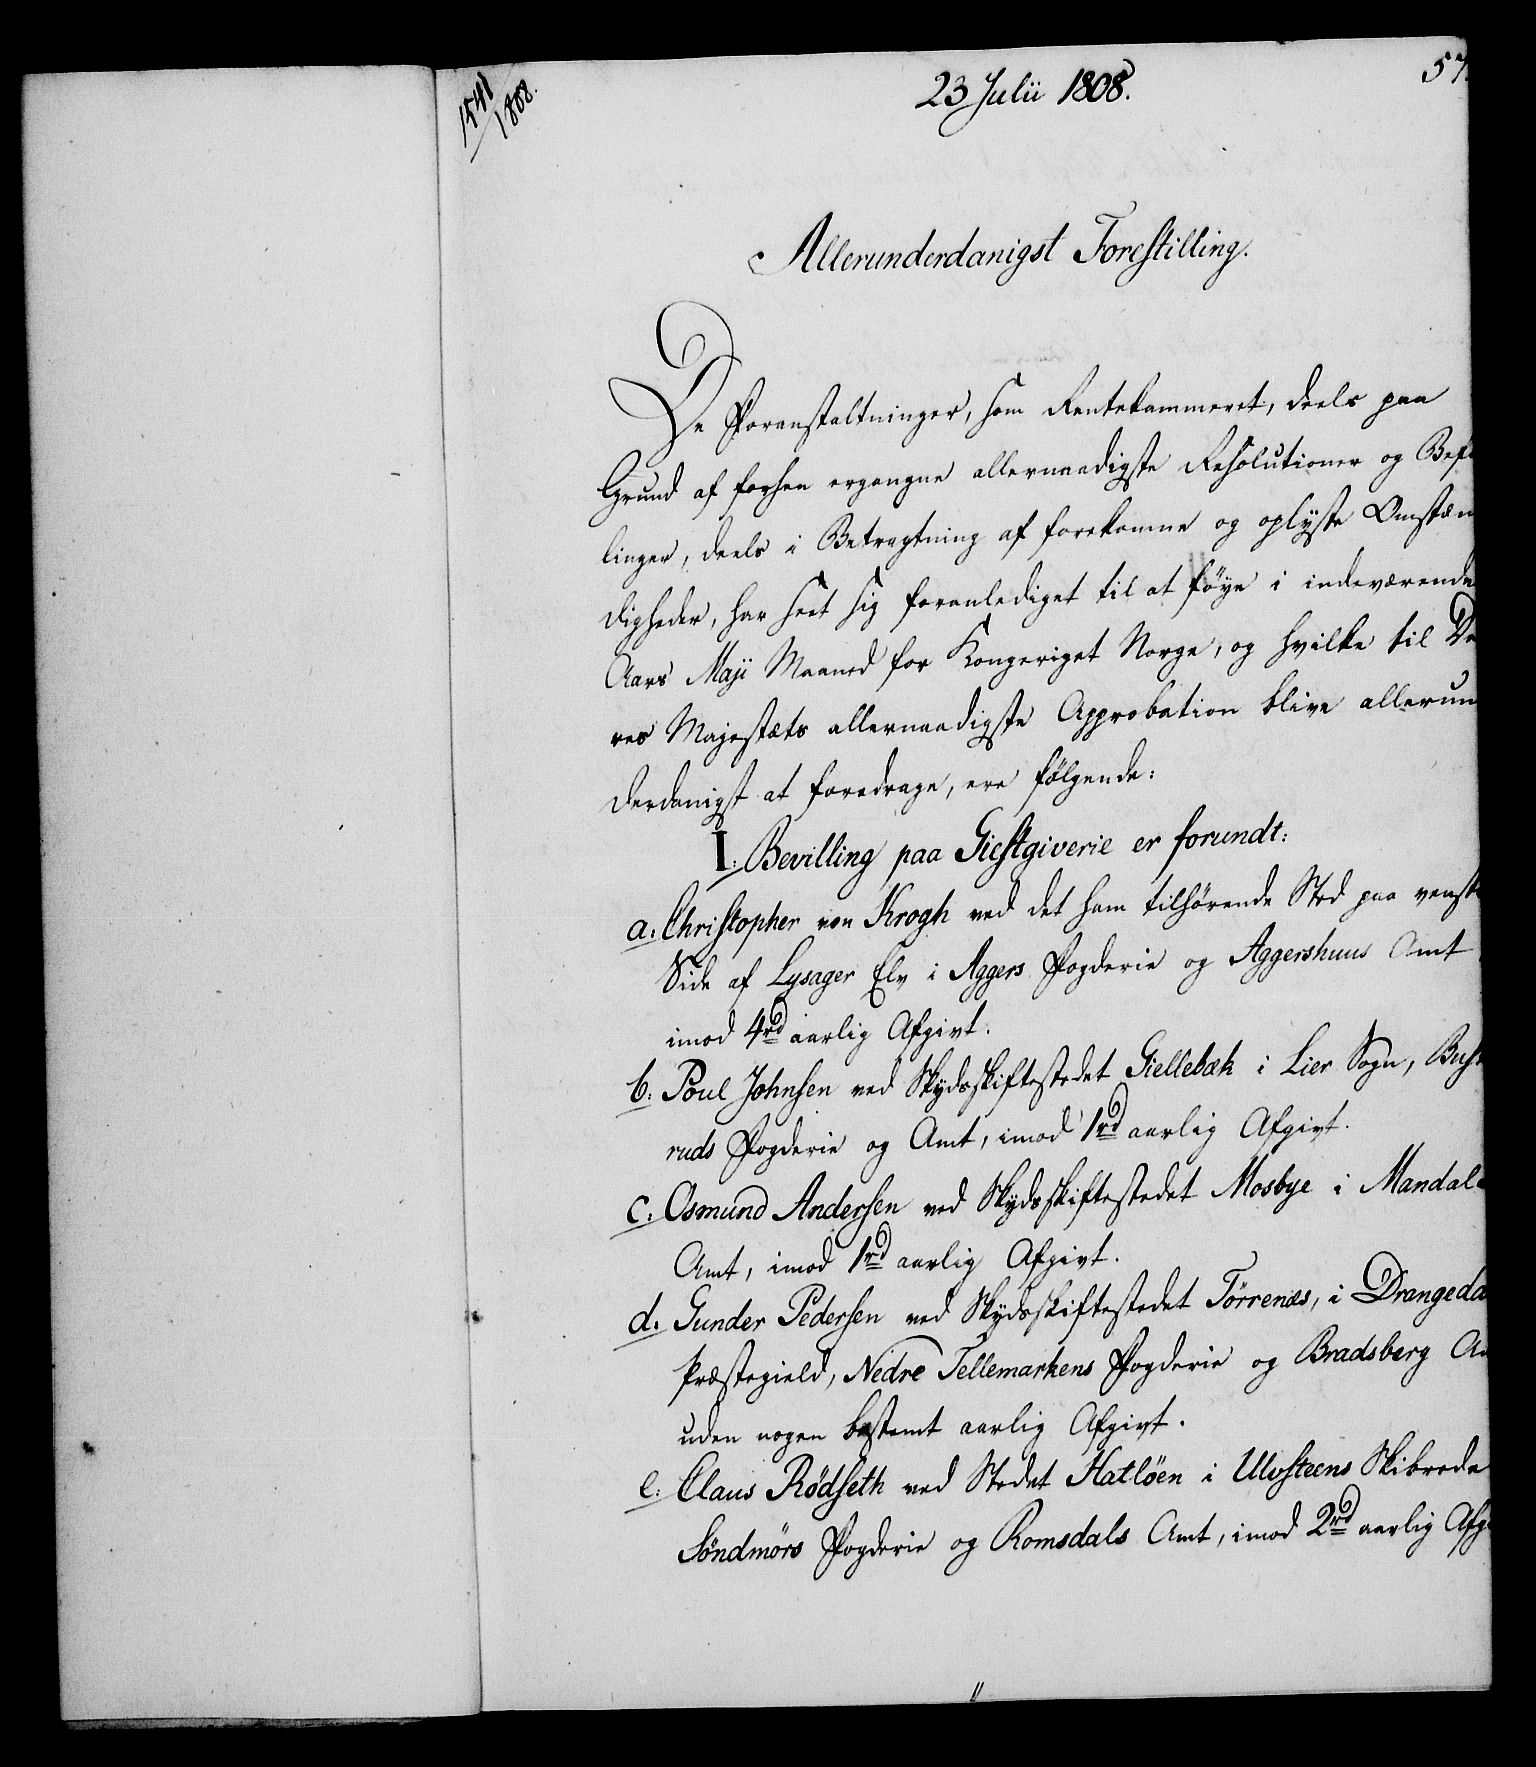 1541/1808.
23 Julii 1808.
57
Allerunderdanigst Forestilling.
De Foranstaltninger, som Rentekammeret, deels paa
Grund af forhen ergangne allernaadigste Resolutioner og Befa
linger, deels i Betragtning af forekomne og oplyste Omstæn
digheder, har seet sig foranlediget til at föye i indeværende
Aars Maji Maaned for Kongeriget Norge, og hvilke til De
res Majestæts allernaadigste Approbation blive allerun
derdanigst at foredrage, ere fölgende:
I. Bevilling paa Giestgiverie er forundt:
a. Christopher von Krogh ved det ham tilhörende Sted paa venst
Side af Lysager Elv i Aggers Fogderie og Aggershuus Amt
imod 4rd aarlig Afgivt.
b. Poul Johnsen ved Skydsskiftestedet Giellebæk i Lier Sogn, Busk
ruds Fogderie og Amt, imod 1rd aarlig Afgivt.
c. Osmund Andersen ved Skydsskiftestedet Mosbye i Mandals
Amt, imod 1rd aarlig Afgivt.
d. Gunder Pedersen ved Skydsskiftestedet Törrenæs, i Drangeda
Præstegield, Nedre Tellemarkens Fogderie og Bradsberg A
uden nogen bestemt aarlig Afgivt.
e. Claus Rödseth ved Stedet Hatlöen i Ulvsteens Skibrede
Söndmörs Fogderie og Romsdals Amt, imod 2rd aarlig Afg